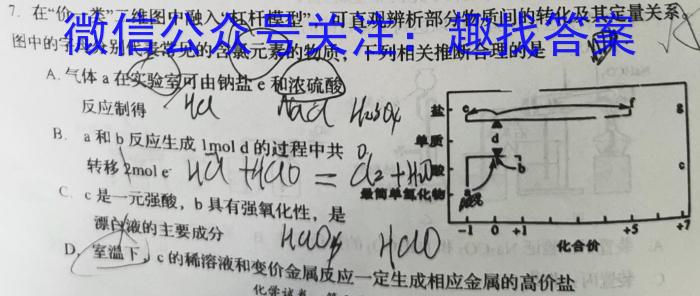 7. 在“价—类”二维图中融入“杠杆模型”,可直观辨析部分物质间的转化及其定量关系。
微信公众号关注:趣找答案
图中的字母分别代表常见的含氯元素的物质,下列相关推断合理的是
A. 气体 a 在实验室可由钠盐 e 和浓硫酸
反应制得
HCl NaCl H₂SO₄
B. a 和 b 反应生成 1mol d 的过程中共
转移 2mol e⁻
HCl + HClO = Cl₂ + H₂O
C. c 是一元强酸,b 具有强氧化性,是
漂白液的主要成分
HClO₄ HClO
D. 室温下,c 的稀溶液和变价金属反应一定生成相应金属的高价盐
盐 e f g
单质 d
酸 b c
最简单氢化物
-1 0 +1 +5 +7
化合价
化学试卷